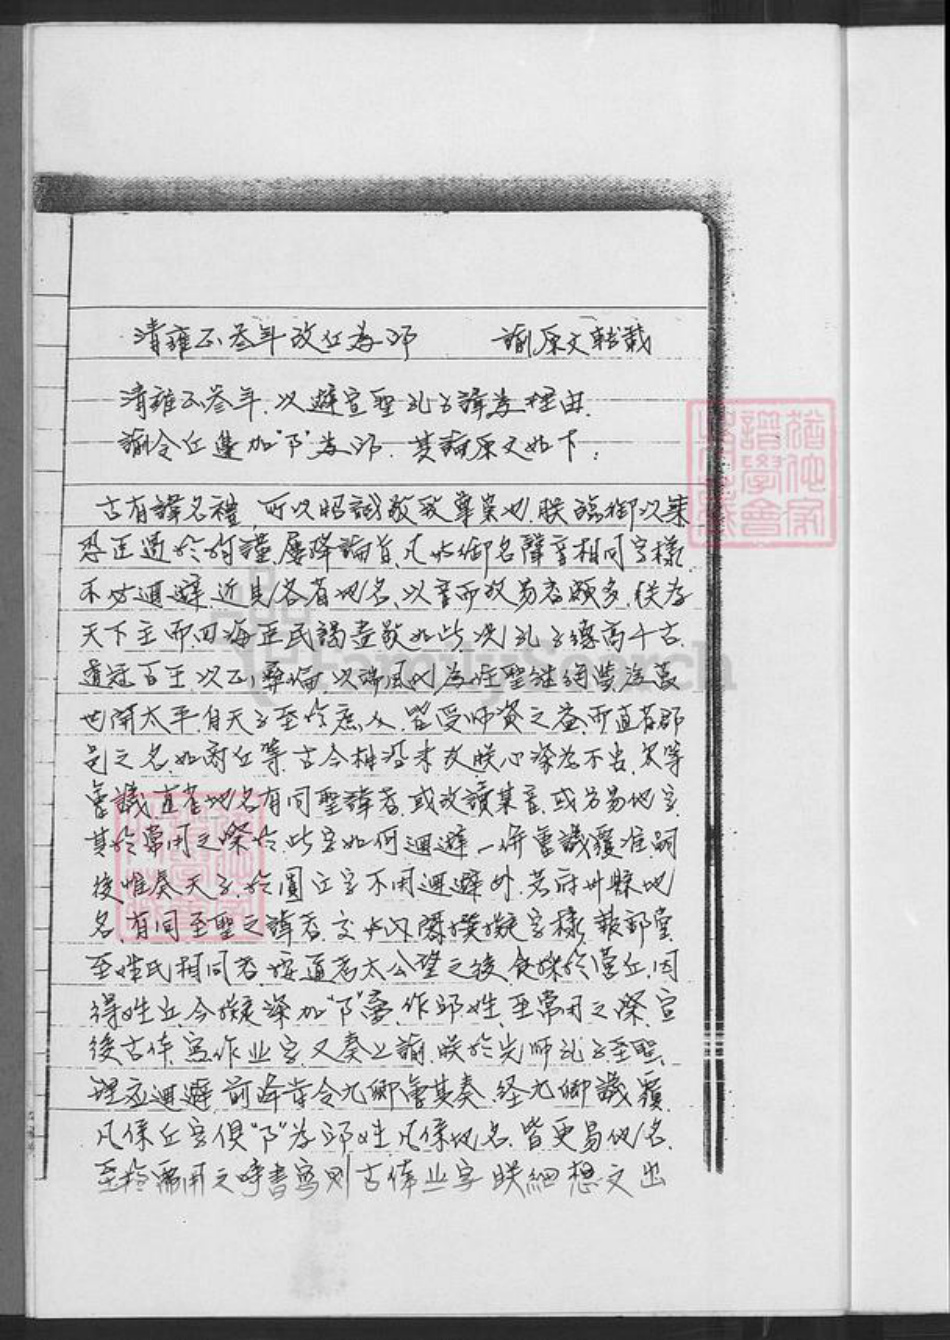 清雍正叁年改丘為邱 諭原文轉載
清雍正叁年.以避宣聖孔子諱為理由.
諭令丘邊加"阝"為邱.其諭原文如下:
古有諱名禮,所以昭誠敬致尊崇也.朕臨御以來
恐迴過於拘謹,屢降諭旨,凡與御名聲音相同字樣
不必迴避.近見各省地名,以音而改易者頗多.朕為
天下主而四海臣民謁盡敬如此.況孔子德高千古
道冠百王.以正彝倫.以端風化.為往聖繼絕學.為萬
世開太平.自天子至於庶人.皆受師資之益.而直省郡
邑之名.如商丘等.古今相沿未改.朕心深為不安.爾等
會議.直省地名有同聖諱者.或改讀某音.或另易他字.
其於常用之際於此字如何迴避.一併會議覆准.嗣
後惟奏天子.於圜丘字不用迴避外.若府州縣地
名.有同至聖之諱者.交內閣撰擬字樣.報部.
至姓氏相同者.按通考太公望之後.食采於營丘.因
得姓丘.今擬添加"阝"旁.作邱姓.至常用之際.宜
從古体.寫作业字.又奏上諭.朕於先師孔子至聖.
理应迴避.前降旨令九卿會其奏.经九卿議覆.
凡係丘字俱"阝"為邱姓.凡係地名.皆更易他名.
至於常用之時書寫則古体业字.朕細想文出
猶他家
譜學會
FamilySearch